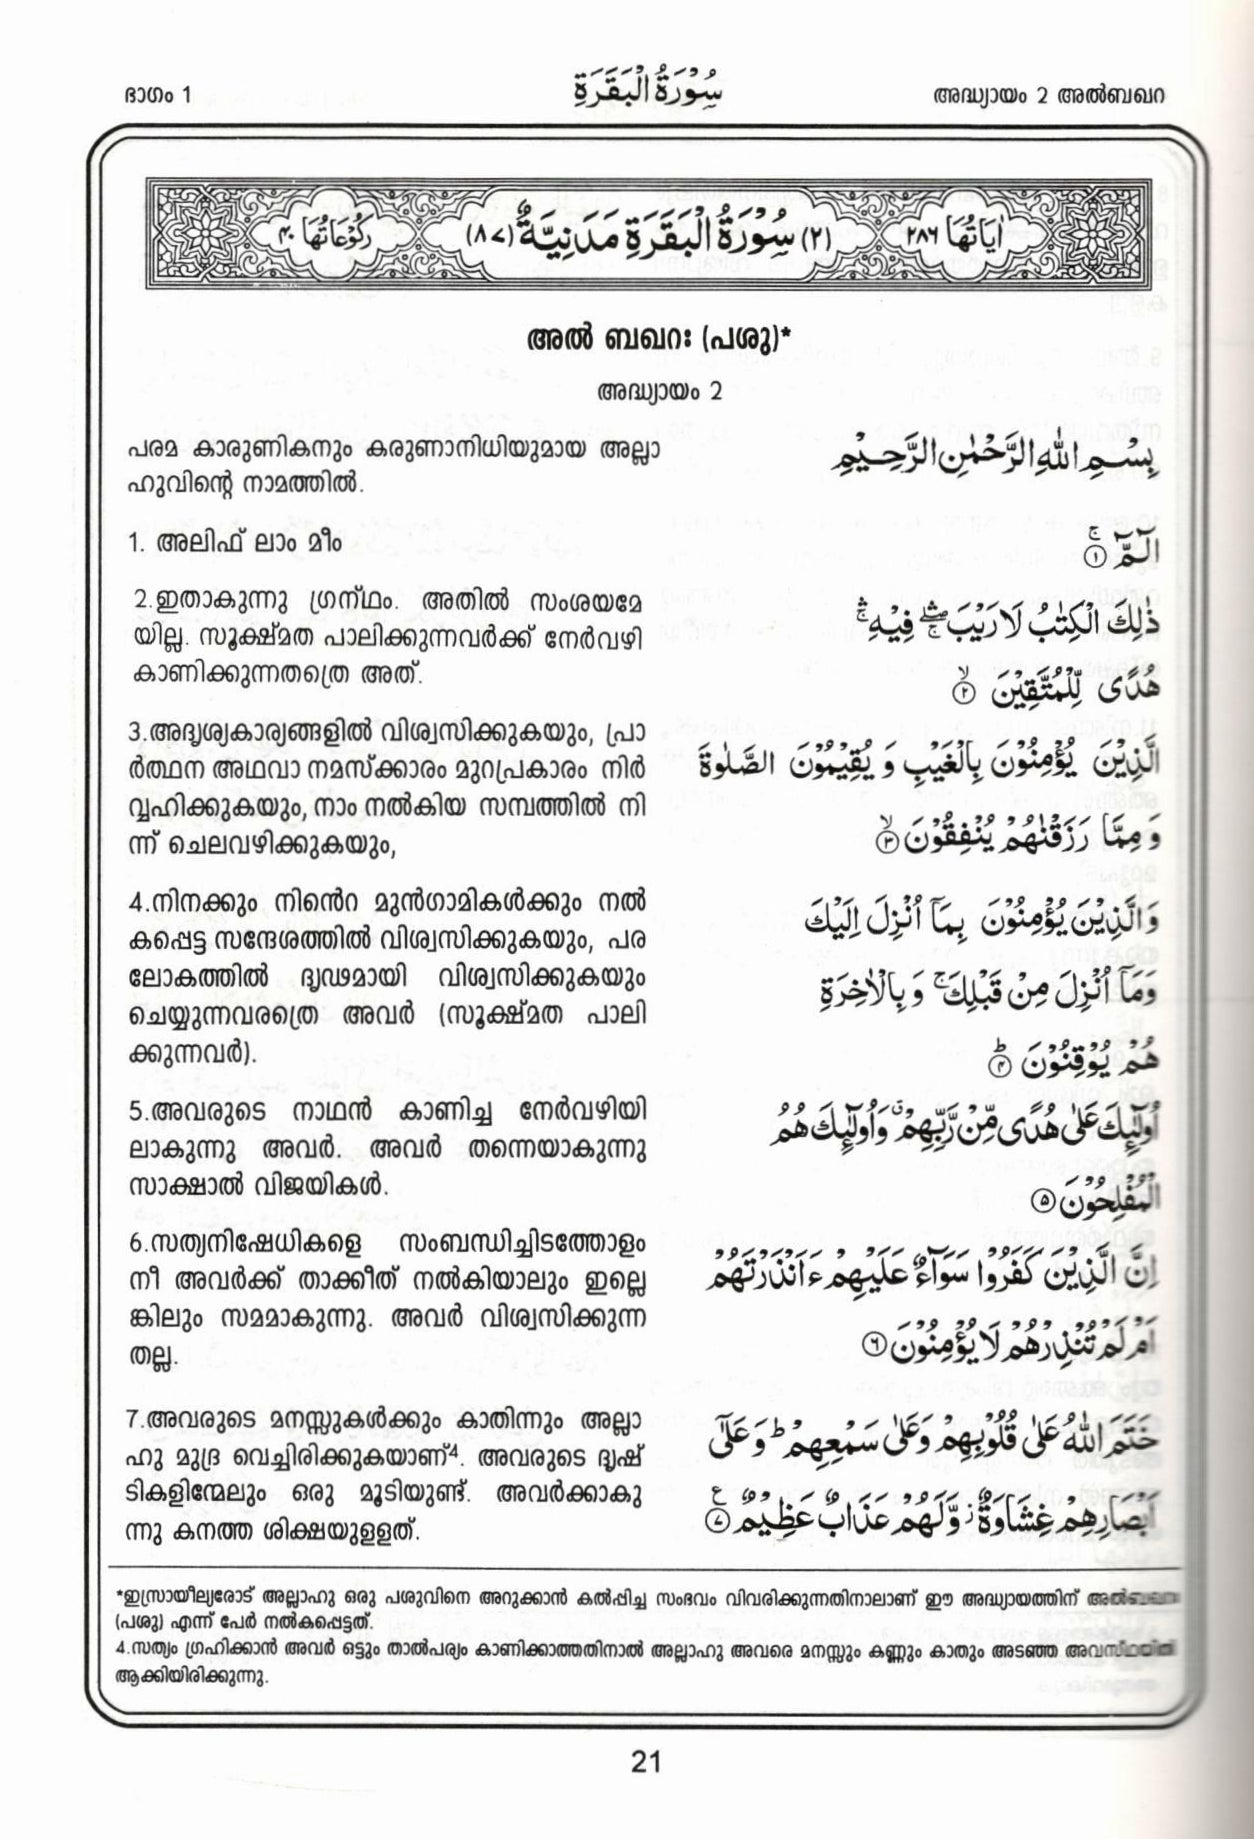 ഭാഗം 1
سُوْرَةُ الْبَقَرَةِ
അദ്ധ്യായം 2 അൽബഖറ
اٰيَاتُهَا ٢٨٦
(٢) سُوْرَةُ الْبَقَرَةِ مَدَنِيَّةٌ (٨٧)
رَكُوْعَاتُهَا ٤٠
അൽ ബഖറഃ (പശു)*
അദ്ധ്യായം 2
പരമ കാരുണികനും കരുണാനിധിയുമായ അല്ലാ
ഹുവിന്റെ നാമത്തിൽ.
بِسْمِ اللهِ الرَّحْمٰنِ الرَّحِيْمِ
1. അലിഫ് ലാം മീം
الٓمّٓ ۚ ۝١
2.ഇതാകുന്നു ഗ്രന്ഥം. അതിൽ സംശയമേ
യില്ല. സൂക്ഷ്മത പാലിക്കുന്നവർക്ക് നേർവഴി
കാണിക്കുന്നതത്രെ അത്.
ذٰلِكَ الْكِتٰبُ لَا رَيْبَ ۛ ۖ ۚ فِيْهِ ۛ ۚ
هُدًى لِّلْمُتَّقِيْنَ ۙ ۝٢
3.അദൃശ്യകാര്യങ്ങളിൽ വിശ്വസിക്കുകയും, പ്രാ
ർത്ഥന അഥവാ നമസ്ക്കാരം മുറപ്രകാരം നിർ
വ്വഹിക്കുകയും, നാം നൽകിയ സമ്പത്തിൽ നി
ന്ന് ചെലവഴിക്കുകയും,
الَّذِيْنَ يُؤْمِنُوْنَ بِالْغَيْبِ وَيُقِيْمُوْنَ الصَّلٰوةَ
وَمِمَّا رَزَقْنٰهُمْ يُنْفِقُوْنَ ۙ ۝٣
4.നിനക്കും നിൻെറ മുൻഗാമികൾക്കും നൽ
കപ്പെട്ട സന്ദേശത്തിൽ വിശ്വസിക്കുകയും, പര
ലോകത്തിൽ ദൃഢമായി വിശ്വസിക്കുകയും
ചെയ്യുന്നവരത്രെ അവർ (സൂക്ഷ്മത പാലി
ക്കുന്നവർ).
وَالَّذِيْنَ يُؤْمِنُوْنَ بِمَآ اُنْزِلَ اِلَيْكَ
وَمَآ اُنْزِلَ مِنْ قَبْلِكَ ۚ وَبِالْاٰخِرَةِ
هُمْ يُوْقِنُوْنَ ؕ ۝٤
5.അവരുടെ നാഥൻ കാണിച്ച നേർവഴിയി
ലാകുന്നു അവർ. അവർ തന്നെയാകുന്നു
സാക്ഷാൽ വിജയികൾ.
اُولٰٓئِكَ عَلٰى هُدًى مِّنْ رَّبِّهِمْ ۗ وَاُولٰٓئِكَ هُمُ
الْمُفْلِحُوْنَ ۝٥
6.സത്യനിഷേധികളെ സംബന്ധിച്ചിടത്തോളം
നീ അവർക്ക് താക്കീത് നൽകിയാലും ഇല്ലെ
ങ്കിലും സമമാകുന്നു. അവർ വിശ്വസിക്കുന്ന
തല്ല.
اِنَّ الَّذِيْنَ كَفَرُوْا سَوَآءٌ عَلَيْهِمْ ءَاَنْذَرْتَهُمْ
اَمْ لَمْ تُنْذِرْهُمْ لَا يُؤْمِنُوْنَ ۝٦
7.അവരുടെ മനസ്സുകൾക്കും കാതിന്നും അല്ലാ
ഹു മുദ്ര വെച്ചിരിക്കുകയാണ്⁴. അവരുടെ ദൃഷ്
ടികളിന്മേലും ഒരു മൂടിയുണ്ട്. അവർക്കാകു
ന്നു കനത്ത ശിക്ഷയുള്ളത്.
خَتَمَ اللهُ عَلٰى قُلُوْبِهِمْ وَعَلٰى سَمْعِهِمْ ؕ وَعَلٰٓى
اَبْصَارِهِمْ غِشَاوَةٌ ۫ وَّلَهُمْ عَذَابٌ عَظِيْمٌ ۝٧ ع
*ഇസ്രായീല്യരോട് അല്ലാഹു ഒരു പശുവിനെ അറുക്കാൻ കൽപ്പിച്ച സംഭവം വിവരിക്കുന്നതിനാലാണ് ഈ അദ്ധ്യായത്തിന് അൽബഖറഃ
(പശു) എന്ന് പേർ നൽകപ്പെട്ടത്.
4.സത്യം ഗ്രഹിക്കാൻ അവർ ഒട്ടും താൽപര്യം കാണിക്കാത്തതിനാൽ അല്ലാഹു അവരെ മനസ്സും കണ്ണും കാതും അടഞ്ഞ അവസ്ഥയിൽ
ആക്കിയിരിക്കുന്നു.
21